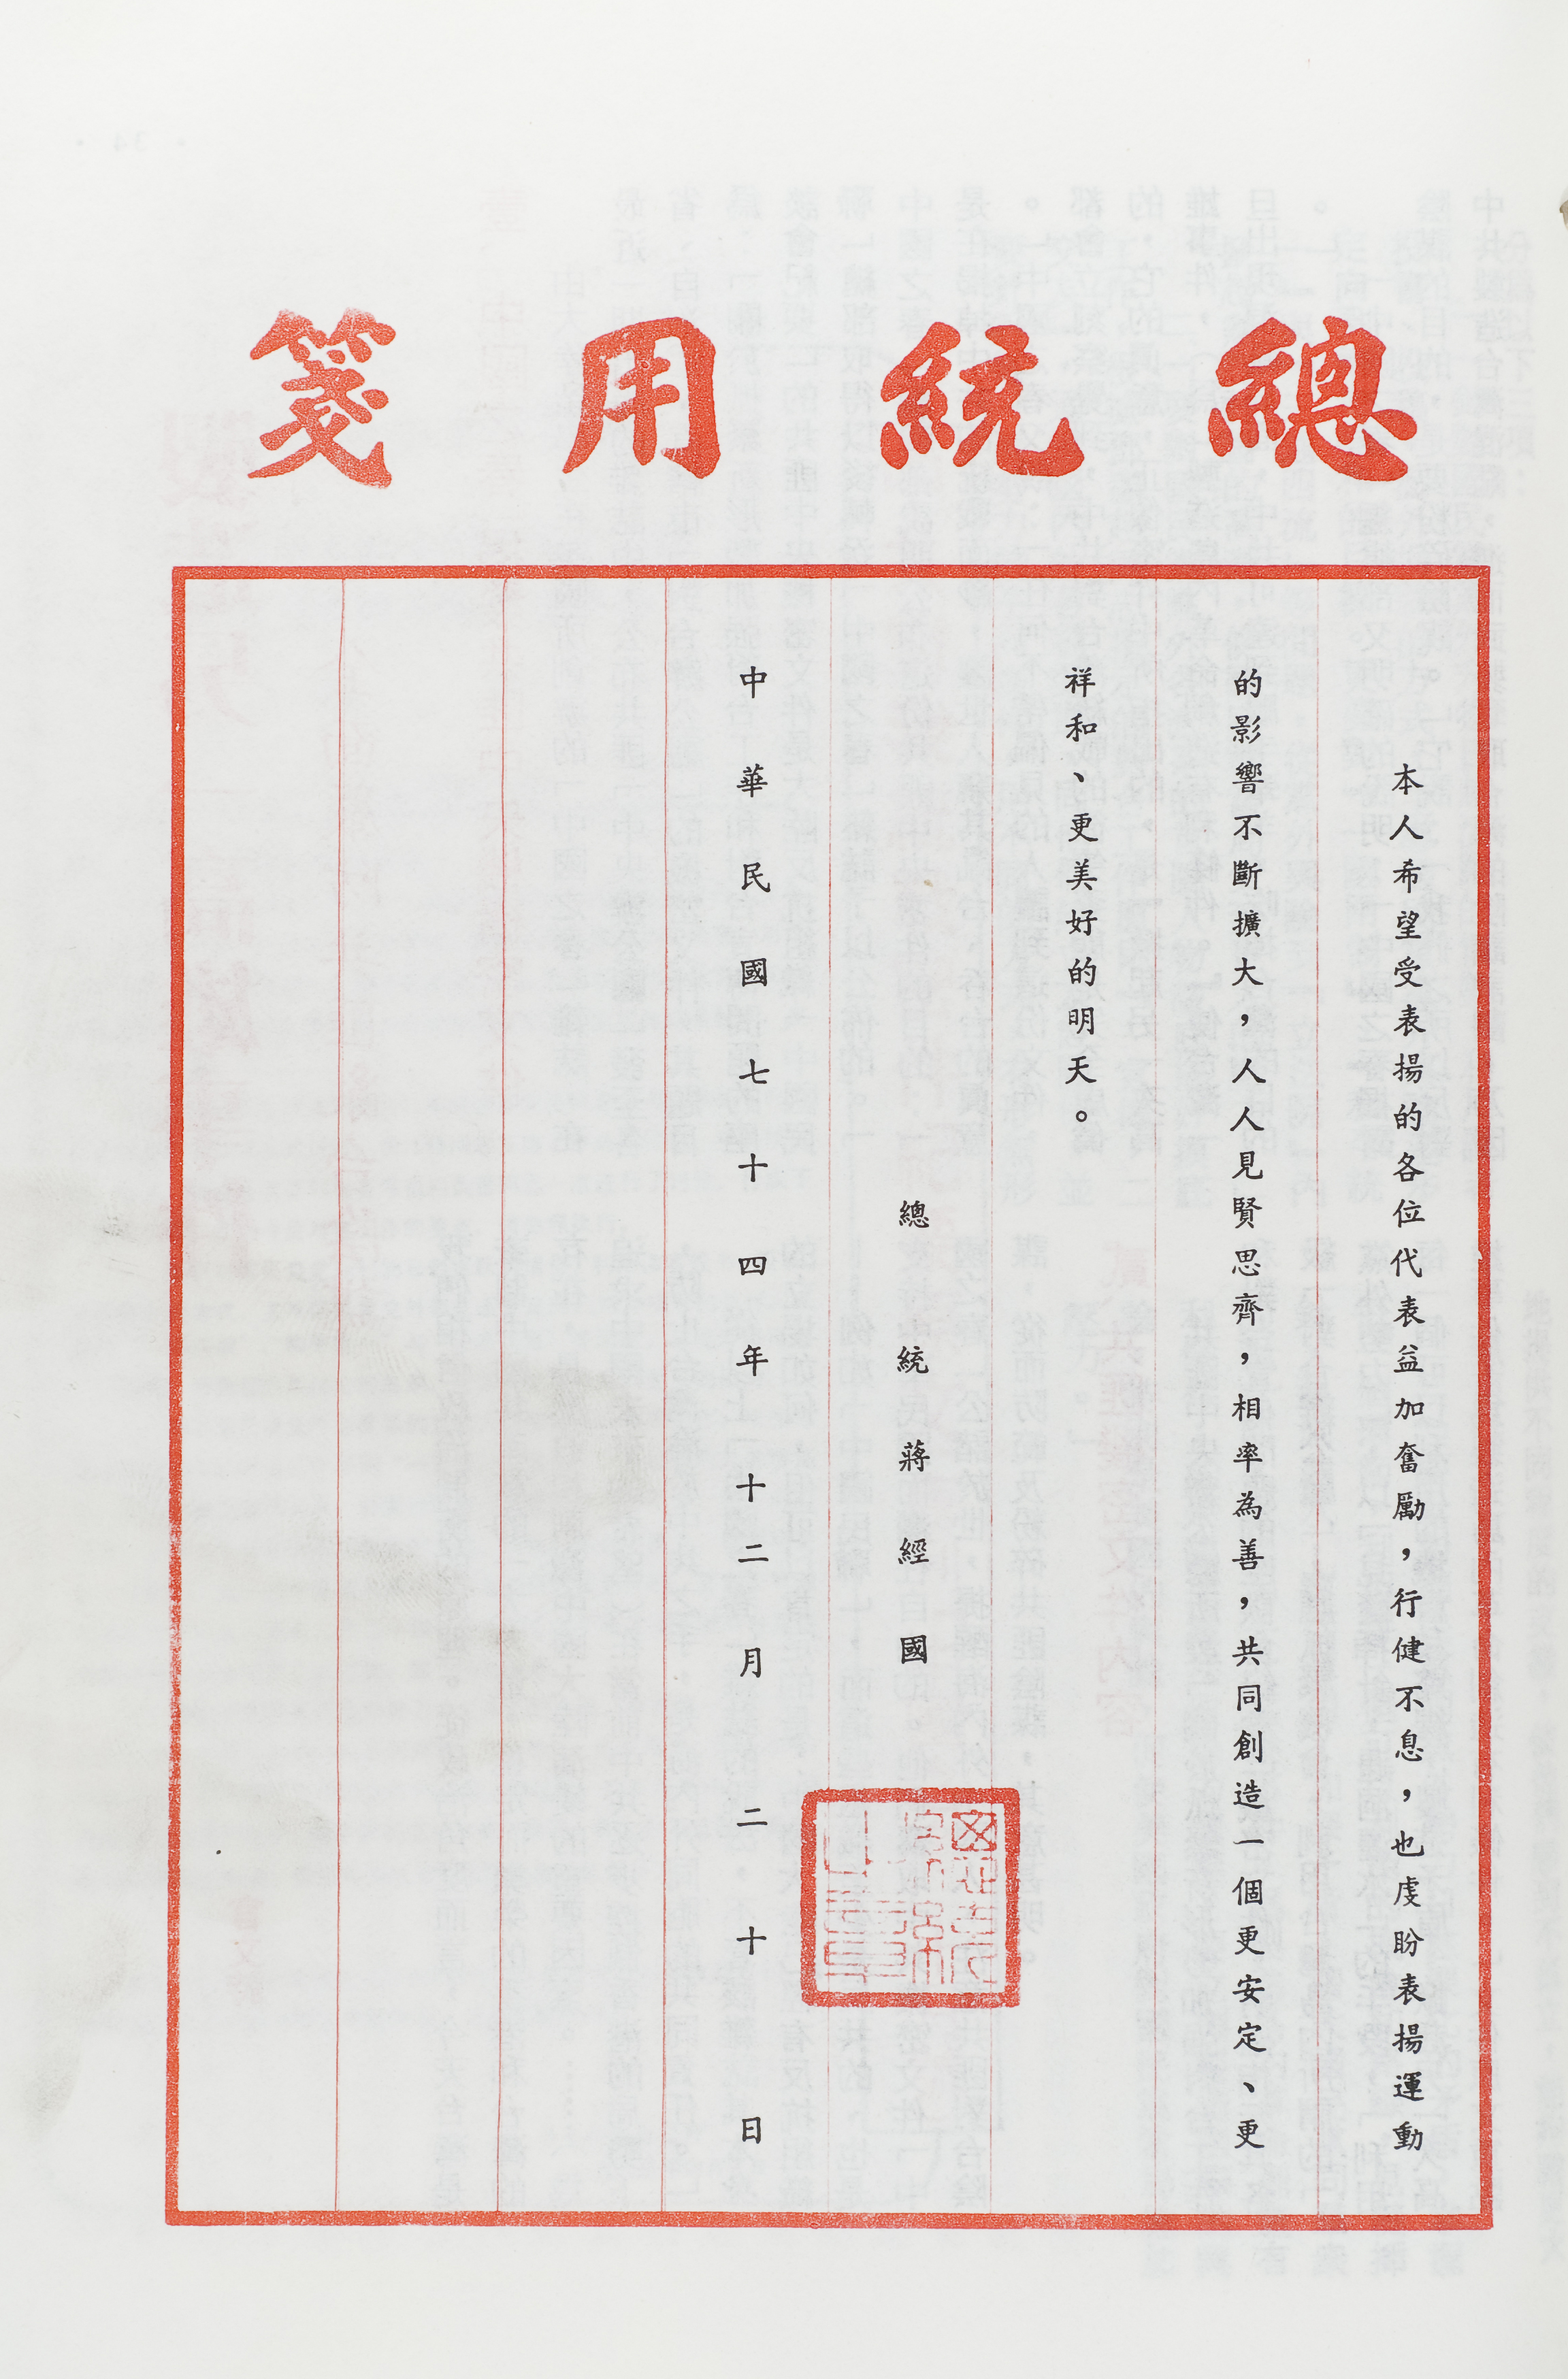 總統用箋
本人希望受表揚的各位代表益加奮勵，行健不息，也虔盼表揚運動
的影響不斷擴大，人人見賢思齊，相率為善，共同創造一個更安定、更
祥和、更美好的明天。
總統蔣經國
中華民國七十四年十二月二十日